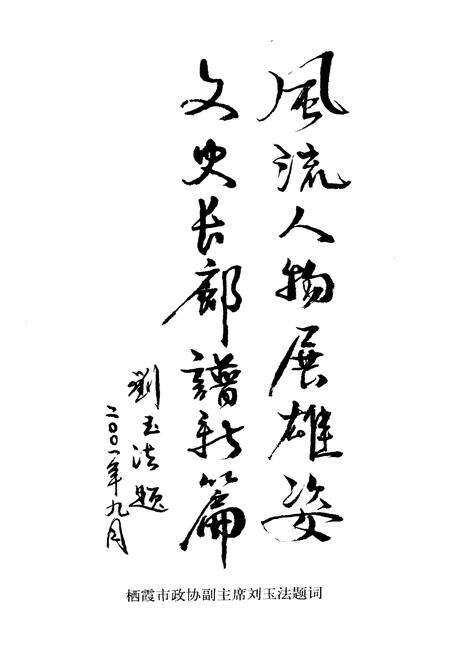 風流人物展雄姿
文史长廊譜新篇
劉玉法题
二〇〇一年九月
栖霞市政协副主席刘玉法题词